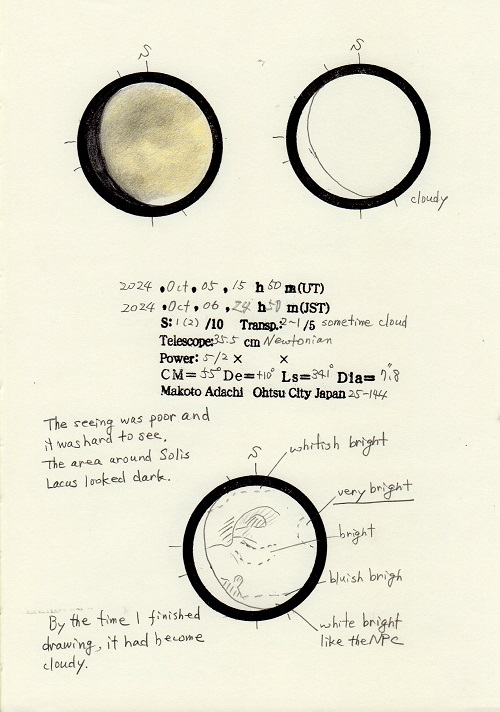 S
S
cloudy
2024 . Oct . 05 . 15 h 50 m (UT)
2024 . Oct . 06 . 24 h 50 m (JST)
S: 1 (2) /10 Transp.: 2~1 /5 sometime cloud
Telescope: 35.5 cm Newtonian
Power: 512 × ×
CM= 55° De= +10° Ls= 341° Dia= 7".8
Makoto Adachi Ohtsu City Japan 25-144
The seeing was poor and
it was hard to see.
The area around Solis
Lacus looked dark.
S
whitish bright
very bright
bright
bluish brigh
white bright
like the NPC
By the time I finished
drawing, it had become
cloudy.